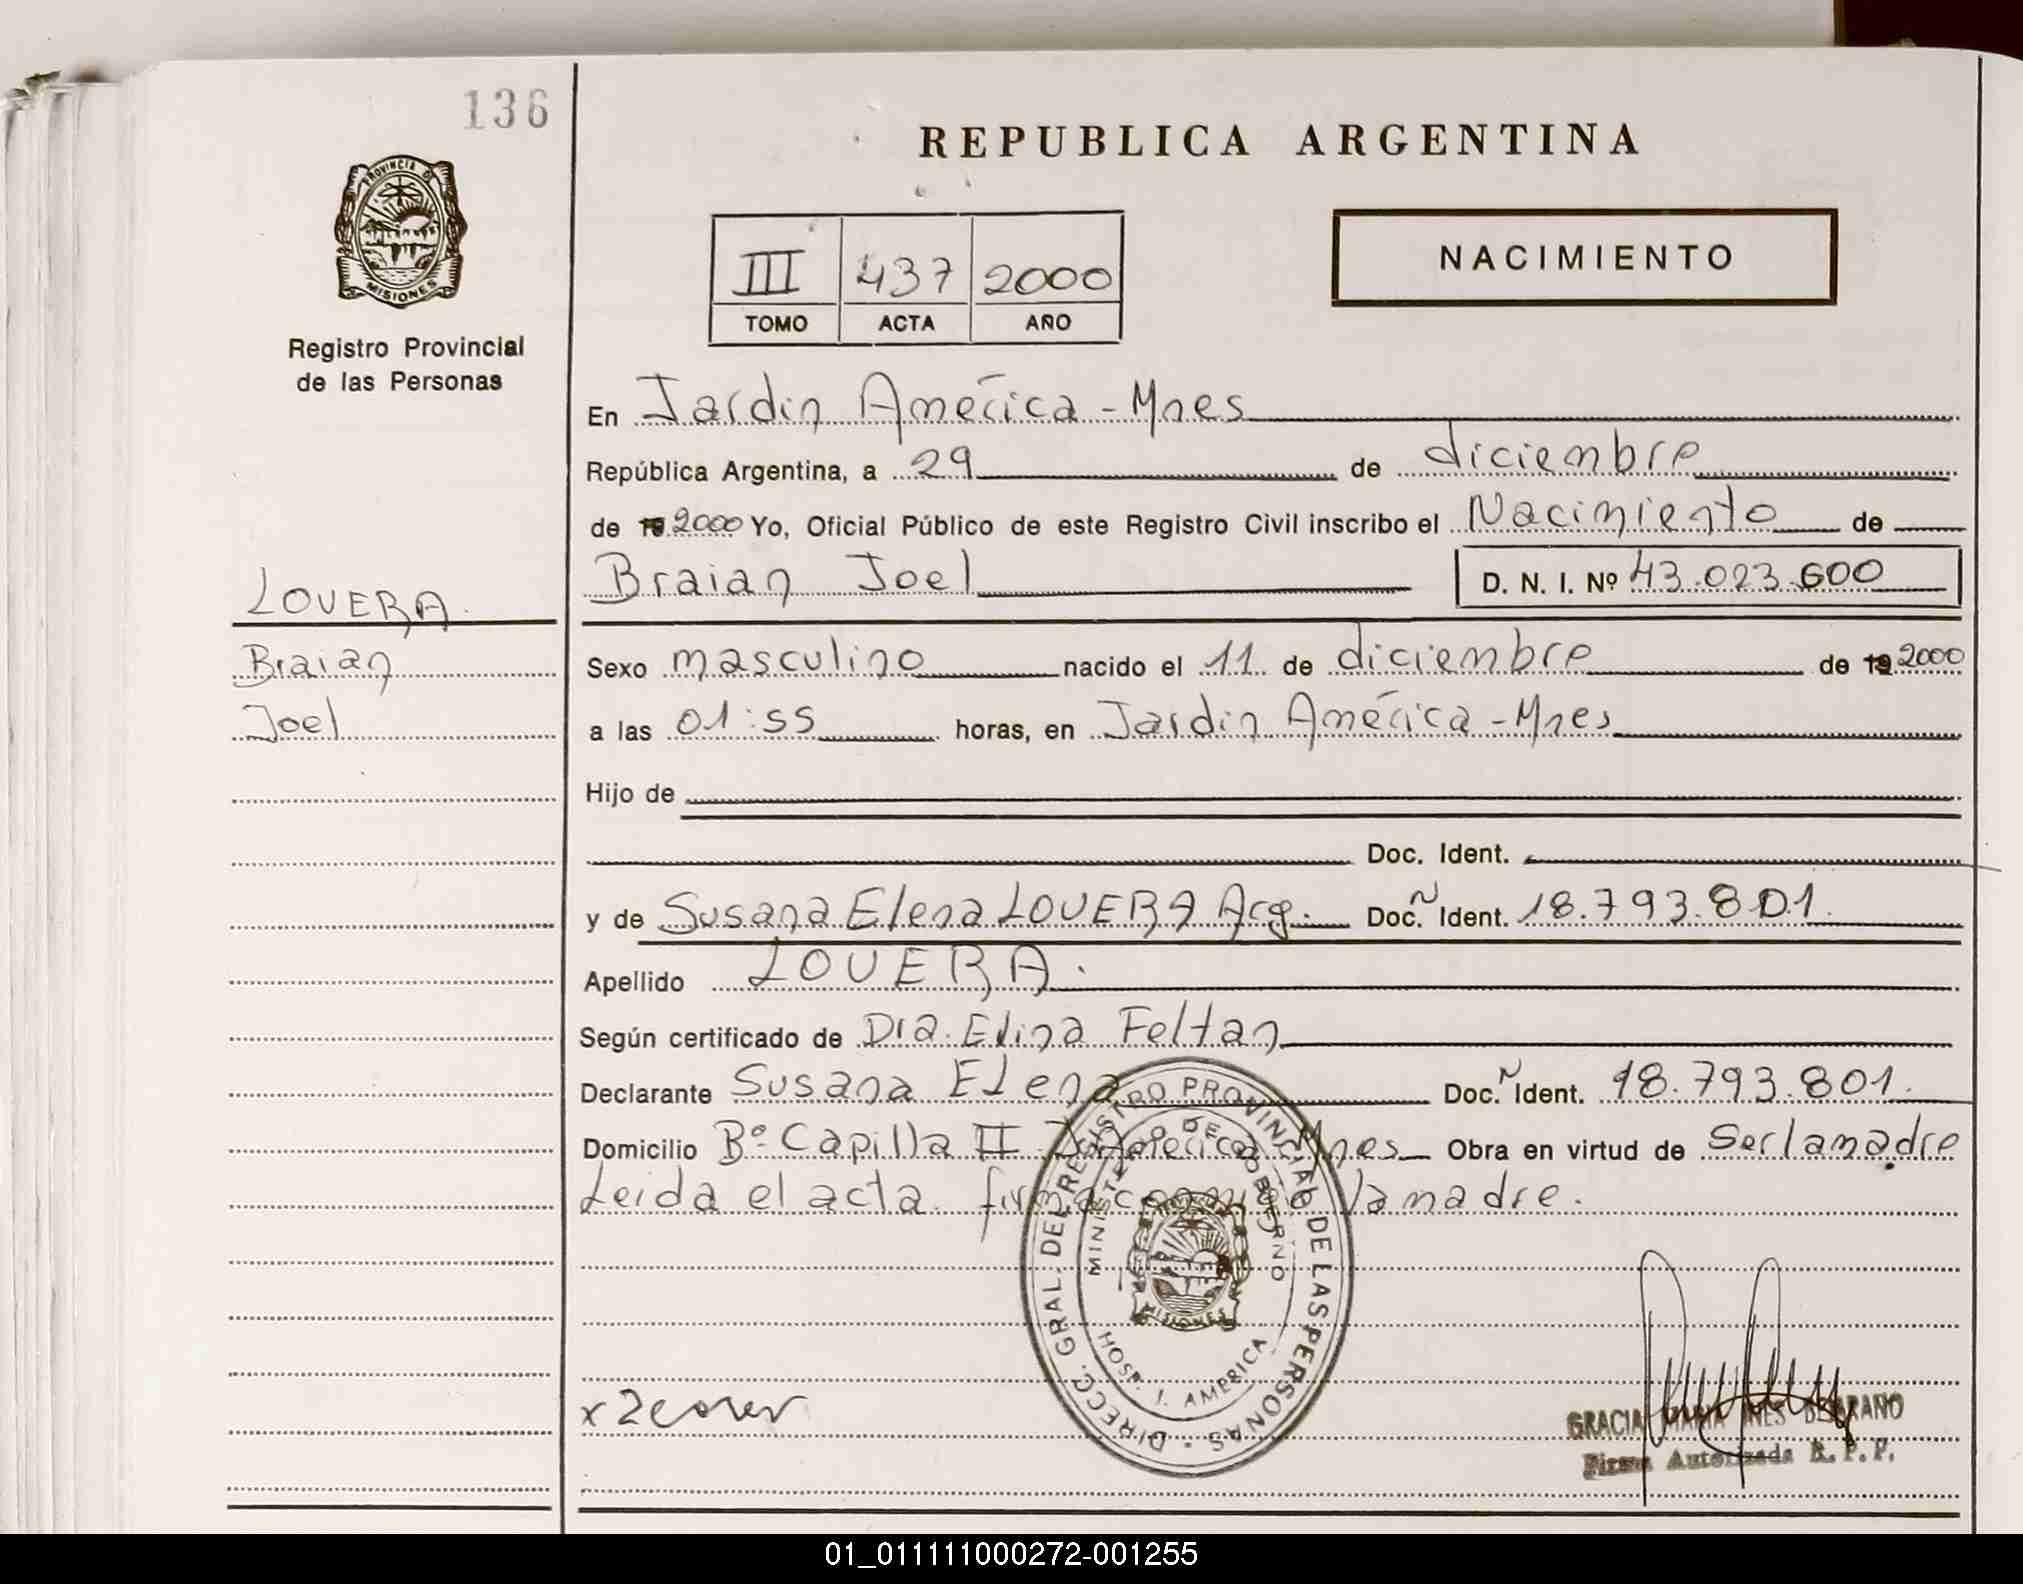 136
REPUBLICA ARGENTINA
PROVINCIA D
MISIONES
Registro Provincial
de las Personas
III 437 2000
TOMO ACTA AÑO
NACIMIENTO
En Jardin América - Mnes
República Argentina, a 29 de diciembre
de 19 2000 Yo, Oficial Público de este Registro Civil inscribo el Nacimiento de
Braian Joel D. N. I. Nº 43.023.600
LOVERA.
Braian
Joel
Sexo masculino nacido el 11 de diciembre de 19 2000
a las 01:55 horas, en Jardin América - Mnes
Hijo de
Doc. Ident.
y de Susana Elena LOVERA Arg. Doc. N Ident. 18.793.801.
Apellido LOVERA.
Según certificado de Dra. Elina Feltan
Declarante Susana Elena Doc. N Ident. 18.793.801.
Domicilio Bº Capilla II J. América Mnes Obra en virtud de Ser la madre
Leida el acta. firma conmigo la madre.
DIRECC. GRAL. DEL REGISTRO PROVINCIAL DE LAS PERSONAS
MINISTERIO DE GOBIERNO
MISIONES
HOSP. J. AMERICA
GRACIA MARIA INES BEJARANO
Firma Autorizada R. P. P.
01_011111000272-001255